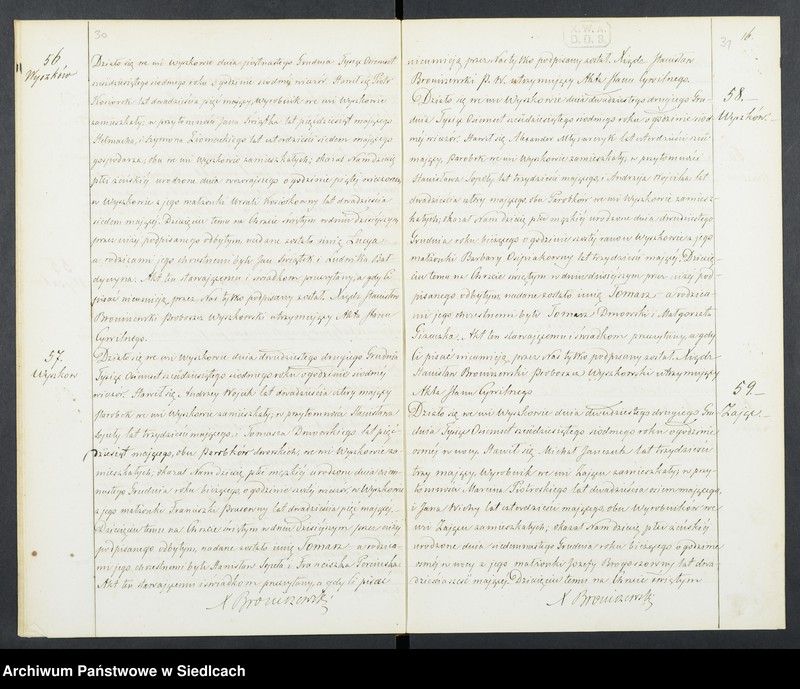 30
56
Wyszków
Działo się we wsi Wyszkowie dnia piętnastego Grudnia Tysiąc Ośmset
sześćdziesiątego siódmego roku o godzinie siódmej wieczór. Stawił się Piotr
lat dwadzieścia pięć mający, Wyrobnik we wsi Wyszkowie
zamieszkały, w przytomności Jana Świątka lat pięćdziesiąt mającego
i Szymona lat czterdzieści siedem mającego
gospodarza, obu we wsi Wyszkowie zamieszkałych; okazał Nam dziecię
płci żeńskiej urodzone dnia wczorajszego o godzinie piątej wieczorem
w Wyszkowie z jego małżonki lat dwadzieścia
siedem mającej. Dziecięciu temu na Chrzcie świętym w dniu dzisiejszym
przez niżej podpisanego odbytym nadane zostało imię Lucya
a rodzicami jego chrzestnemi byli Jan Świątek i Ludwika
Akt ten stawającemu i świadkom przeczytany, a gdy Ci
pisać nieumieją przez Nas tylko podpisany został. Xiądz Stanisław
Broniszewski Proboszcz Wyszkowski utrzymujący Akta Stanu
Cywilnego.
57.
Wyszków
Działo się we wsi Wyszkowie dnia dwudziestego drugiego Grudnia
Tysiąc Ośmset sześćdziesiątego siódmego roku o godzinie siódmej
wieczór. Stawił się Andrzej Wojcik lat dwadzieścia cztery mający
Parobek we wsi Wyszkowie zamieszkały, w przytomności Stanisława
Sopely lat trzydzieści mającego, i Tomasza Dmowskiego lat pięć-
dziesiąt mającego, obu Parobków dworskich, we wsi Wyszkowie za-
mieszkałych, okazał Nam dziecię płci męzkiej urodzone dnia
Grudnia roku bieżącego o godzinie szóstej wieczór, w Wyszkowie
z jego małżonki Franciszki lat dwadzieścia pięć mającej.
Dziecięciu temu na Chrzcie świętym w dniu dzisiejszym przez niżej
podpisanego odbytym, nadane zostało imię Tomasz a rodzica-
mi jego chrzestnemi byli Stanisław Sopela i Franciszka
Akt ten stawającemu i świadkom przeczytany, a gdy Ci pisać
X Broniszewski
31
16
nieumieją przez Nas tylko podpisany został. Xiądz Stanisław
Broniszewski P. W. utrzymujący Akta Stanu Cywilnego.
58.
Wyszków.
Działo się we wsi Wyszkowie dnia dwudziestego drugiego Gru-
dnia Tysiąc Ośmset sześćdziesiątego siódmego roku o godzinie siód-
mej wieczór. Stawił się Alexander Młynarczyk lat czterdzieści
mający, Parobek we wsi Wyszkowie zamieszkały, w przytomności
Stanisława Sopely lat trzydzieści mającego, i Andrzeja Wojcika lat
dwadzieścia cztery mającego, obu Parobków we wsi Wyszkowie zamiesz-
kałych, okazał Nam dziecię płci męzkiej urodzone dnia dwudziestego
Grudnia roku bieżącego o godzinie szóstej rano w Wyszkowie z jego
małżonki Barbary lat trzydzieści mającej. Dziecię-
ciu temu na Chrzcie świętym w dniu dzisiejszym przez niżej pod-
pisanego odbytym, nadane zostało imię Tomasz, a rodzica-
mi jego chrzestnemi byli Tomasz Dmowski i Małgorzata
Akt ten stawającemu i świadkom przeczytany, a gdy
Ci pisać nieumieją, przez Nas tylko podpisany został. Xiądz
Stanisław Broniszewski Proboszcz Wyszkowski utrzymujący
Akta Stanu Cywilnego
59.
Zając
Działo się we wsi Wyszkowie dnia dwudziestego drugiego Gru-
dnia Tysiąc Ośmset sześćdziesiątego siódmego roku o godzinie
ósmej w nocy. Stawił się Michał lat trzydzieści
trzy mający, Wyrobnik we wsi Zającu zamieszkały, w przy-
tomności Marcina Piotrowskiego lat dwadzieścia ośm mającego,
i Jana lat czterdzieści mającego obu Wyrobników we
wsi Zającu zamieszkałych, okazał Nam dziecię płci żeńskiej
urodzone dnia siedmnastego Grudnia roku bieżącego o godzinie
ósmej w nocy z jego małżonki Józefy lat dwa-
dzieścia sześć mającej. Dziecięciu temu na Chrzcie świętym
X Broniszewski
Archiwum Państwowe w Siedlcach